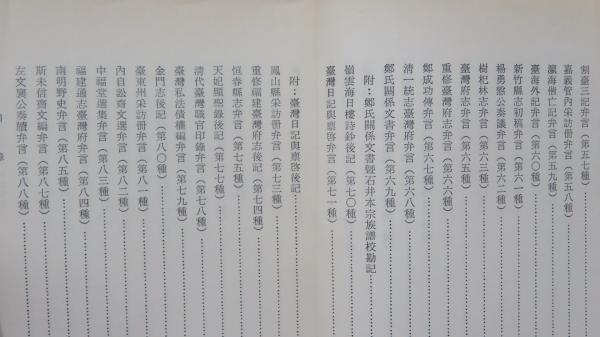 割臺三記弁言（第五七種）
嘉義管內采訪冊弁言（第五八種）
瀛海偕亡記弁言（第五九種）
臺海外記弁言（第六〇種）
新竹縣志初稿弁言（第六一種）
楊勇愨公奏議弁言（第六二種）
樹杞林志弁言（第六三種）
臺灣府志弁言（第六五種）
重修臺灣府志弁言（第六六種）
鄭成功傳弁言（第六七種）
清一統志臺灣府弁言（第六八種）
鄭氏關係文書弁言（第六九種）
附：鄭氏關係文書暨石井本宗族譜校勘記
嶺雲海日樓詩鈔後記（第七〇種）
臺灣日記與稟啓弁言（第七一種）
附：臺灣日記與稟啓後記
鳳山縣采訪冊弁言（第七三種）
重修福建臺灣府志後記（第七四種）
恆春縣志弁言（第七五種）
天妃顯聖錄後記（第七七種）
清代臺灣職官印錄弁言（第七八種）
臺灣私法債權編弁言（第七九種）
金門志後記（第八〇種）
臺東州采訪冊弁言（第八一種）
內自訟齋文選弁言（第八二種）
中福堂選集弁言（第八三種）
福建通志臺灣府弁言（第八四種）
南明野史弁言（第八五種）
斯未信齋文編弁言（第八七種）
左文襄公奏牘弁言（第八八種）
目錄